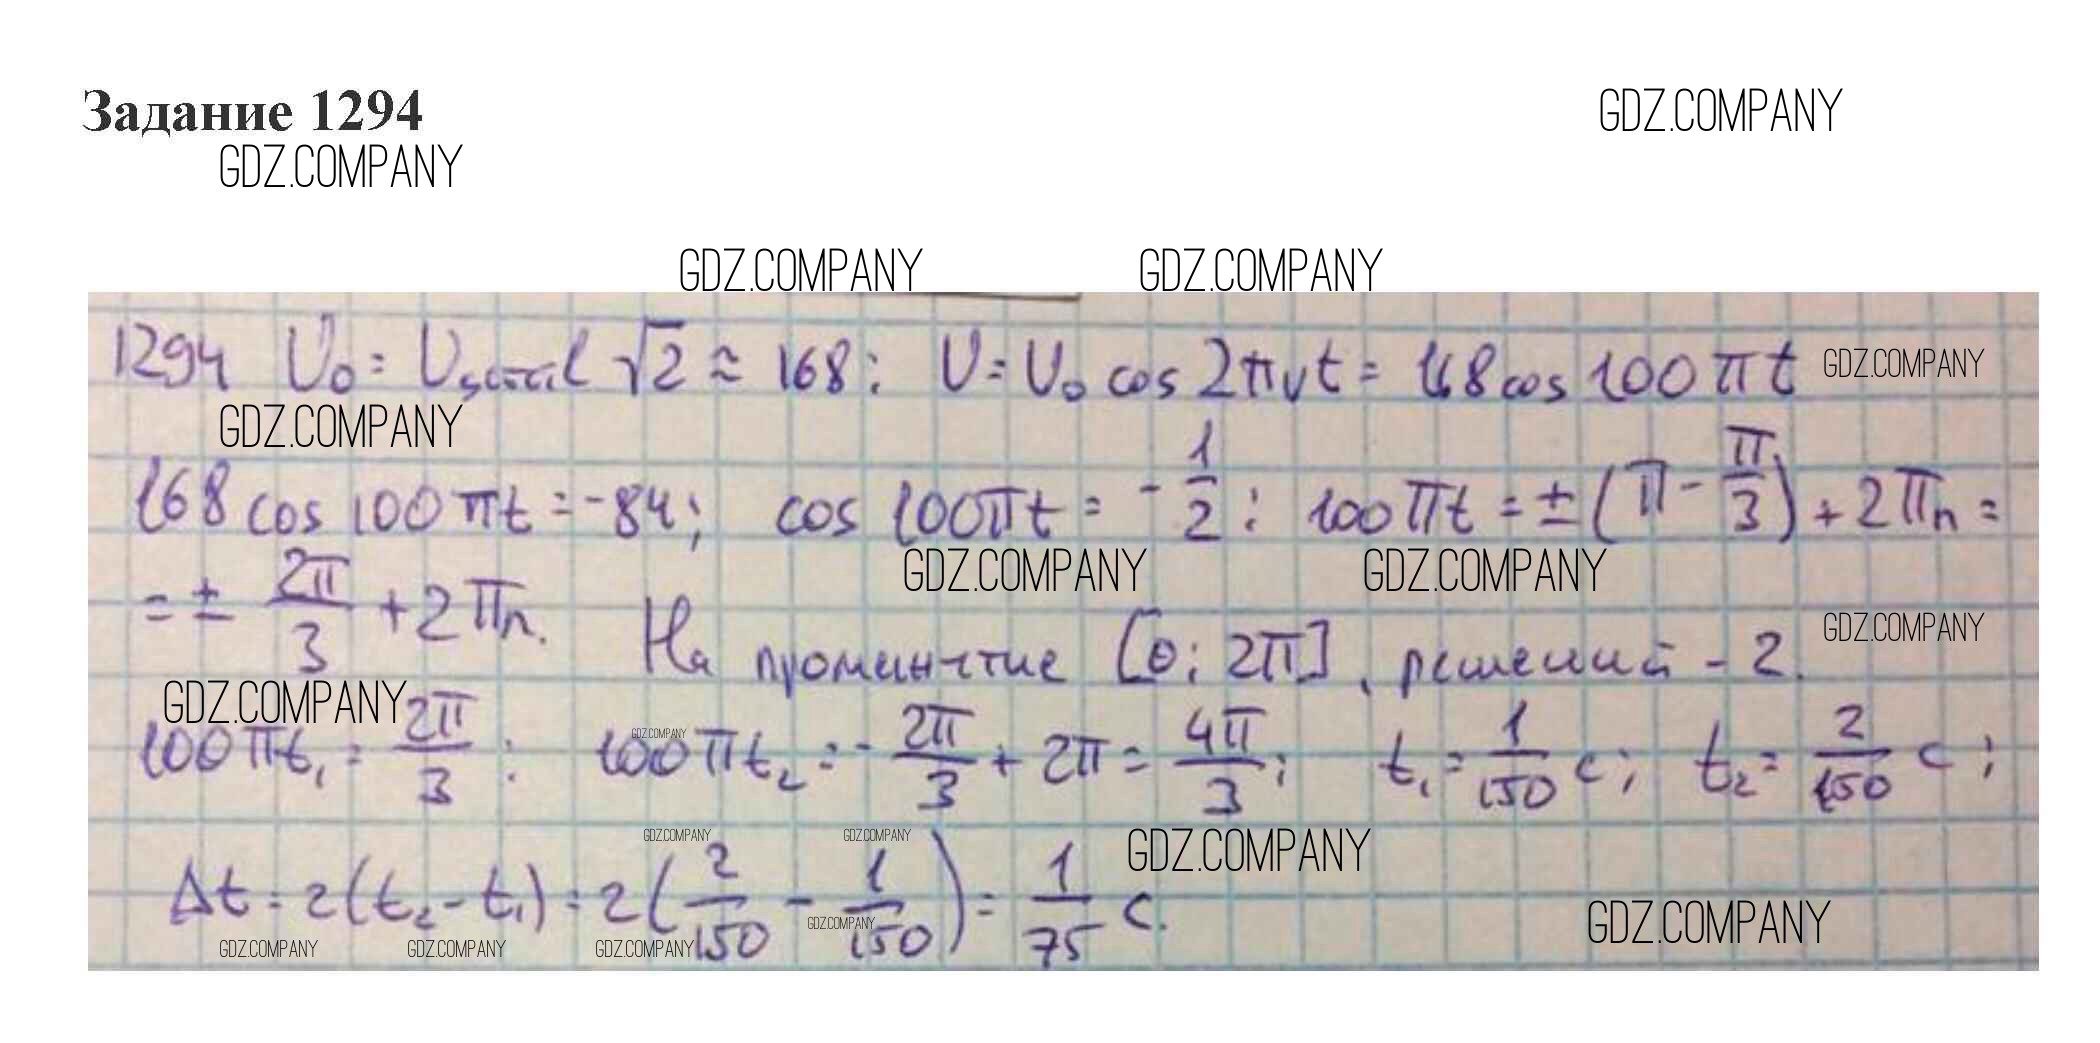 Задание 1294
GDZ.COMPANY
GDZ.COMPANY
GDZ.COMPANY GDZ.COMPANY
1294 U₀ = U √2 ≈ 168; U = U₀ cos 2πνt = 168 cos 100πt
GDZ.COMPANY
GDZ.COMPANY
168 cos 100πt = -84; cos 100πt = -1/2; 100πt = ±(π - π/3) + 2πn =
GDZ.COMPANY GDZ.COMPANY
= ± 2π/3 + 2πn. На [0; 2π], решений - 2.
GDZ.COMPANY
GDZ.COMPANY
100πt₁ = 2π/3; 100πt₂ = -2π/3 + 2π = 4π/3; t₁ = 1/150 с; t₂ = 2/150 с;
GDZ.COMPANY
GDZ.COMPANY GDZ.COMPANY GDZ.COMPANY
Δt = 2(t₂ - t₁) = 2(2/150 - 1/150) = 1/75 с.
GDZ.COMPANY GDZ.COMPANY
GDZ.COMPANY GDZ.COMPANY GDZ.COMPANY